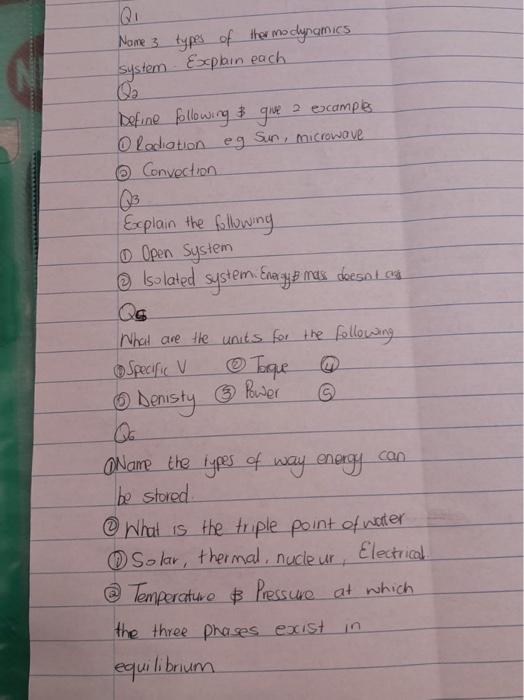 Q1
Name 3 types of thermodynamics
system. Explain each
Q2
Define following & give 2 examples
① Radiation eg Sun, microwave
② Convection
Q3
Explain the following
① Open System
② Isolated system. Energy & mass doesnt
Q5
What are the units for the following
① Specific V ② Torque ④
⑤ Denisty ③ Power ⑤
Q6
① Name the types of way energy can
be stored.
② What is the triple point of water
① Solar, thermal, nucleur, Electrical
② Temperature & Pressure at which
the three phases exist in
equilibrium